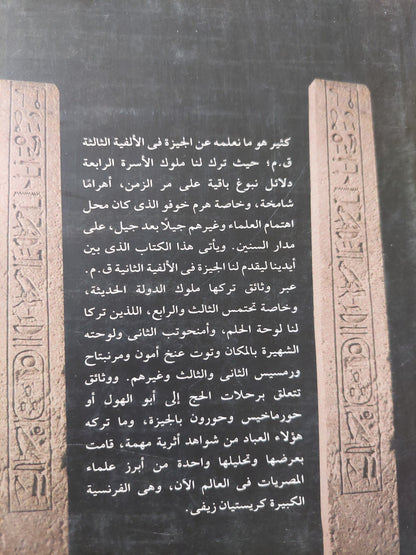 كثير هو ما نعلمه عن الجيزة فى الألفية الثالثة
ق.م؛ حيث ترك لنا ملوك الأسرة الرابعة
دلائل نبوغ باقية على مر الزمن، أهرامًا
شامخة، وخاصة هرم خوفو الذى كان محل
اهتمام العلماء وغيرهم جيلًا بعد جيل، على
مدار السنين. ويأتى هذا الكتاب الذى بين
أيدينا ليقدم لنا الجيزة فى الألفية الثانية ق.م.
عبر وثائق تركها ملوك الدولة الحديثة،
وخاصة تحتمس الثالث والرابع، اللذين تركا
لنا لوحة الحلم، وأمنحوتب الثانى ولوحته
الشهيرة بالمكان وتوت عنخ أمون ومرنبتاح
ورمسيس الثانى والثالث وغيرهم. ووثائق
تتعلق برحلات الحج إلى أبو الهول أو
حورماخيس وحورون بالجيزة، وما تركه
هؤلاء العباد من شواهد أثرية مهمة، قامت
بعرضها وتحليلها واحدة من أبرز علماء
المصريات فى العالم الآن، وهى الفرنسية
الكبيرة كريستيان زيفى.